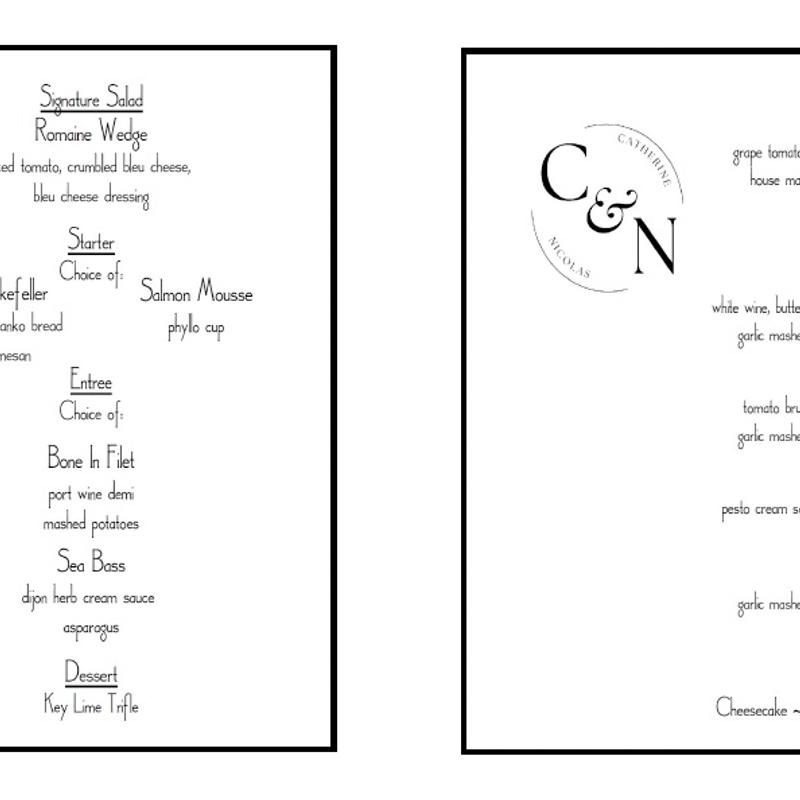 Signature Salad
Romaine Wedge
tomato, crumbled bleu cheese,
bleu cheese dressing
Starter
Choice of:
Salmon Mousse
bread
phyllo cup
Entree
Choice of:
Bone In Filet
port wine demi
mashed potatoes
Sea Bass
dijon herb cream sauce
asparagus
Dessert
Key Lime Trifle
C&N
CATHERINE
NICOLAS
grape
house
white wine,
garlic
tomato
garlic
pesto cream
garlic
Cheesecake ~